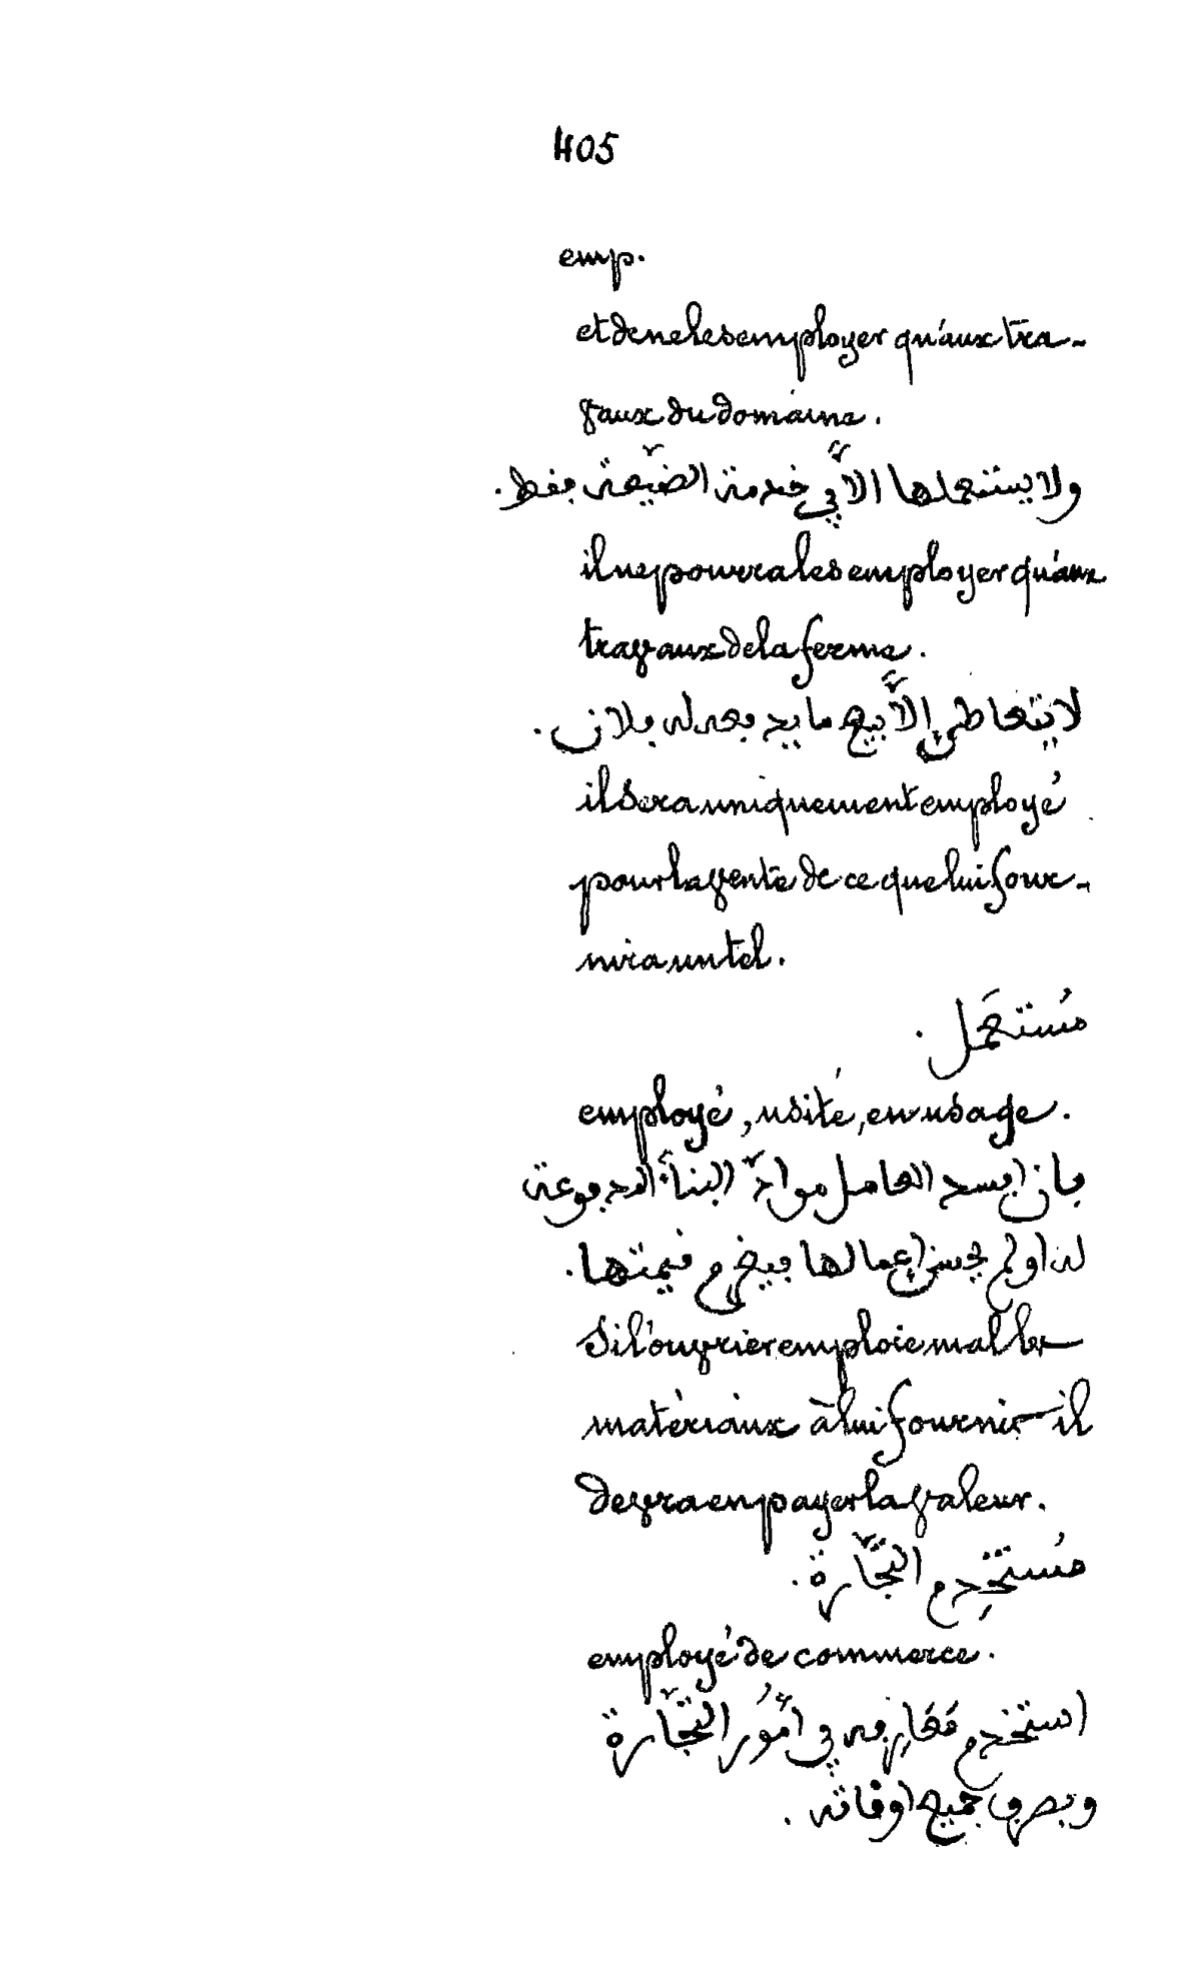 405
emp.
et de ne les employer qu'aux tra-
vaux du domaine.
ولا يستعملها الاَّ في خدمة الضيّعة فقط.
il ne pourra les employer qu'aux
travaux de la ferme.
لا يتعاطى إلاَّ بيع ما يدفعه له فلان.
il sera uniquement employé
pour la vente de ce que lui four-
nira un tel.
مُستعمَل.
employé, usité, en usage.
فان افسد العامل موادّ البناء المدفوعة
له او لم يحسن إعمالها فيغرم قيمتها.
Si l'ouvrier emploie mal les
matériaux à lui fournis il
devra en payer la valeur.
مُستخدِم التّجّارة.
employé de commerce.
استخدم مَعَارِفه في امُور التّجّارة
وبصرف جميع اوقاته.